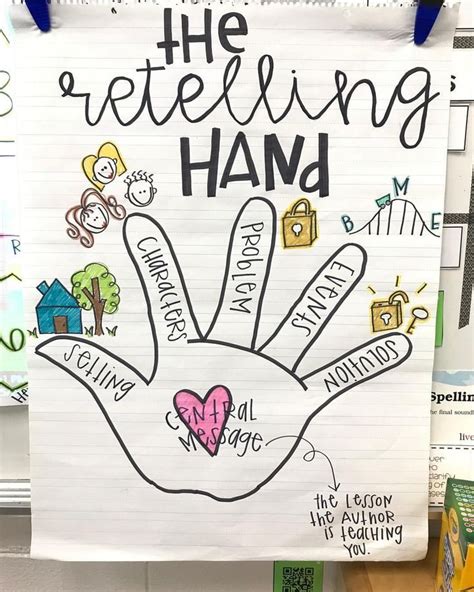 the
retelling
HAND
B M E
SETTING
CHARACTERS
PROBLEM
EVENTS
SOLUTION
CENTRAL
MESSAGE
the LESSON
the AUTHOR
is teaching
YOU.
Spelling
the final sound